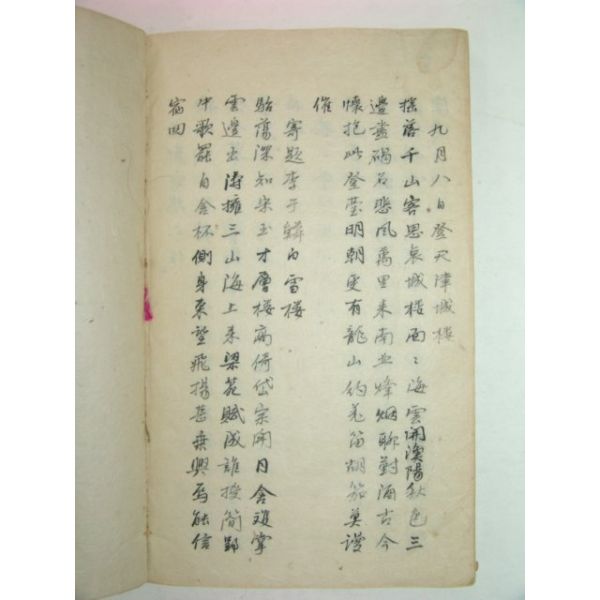 九月八日登天津城楼
搖落千山客思哀城楼面〻海雲開漁陽秋色三
邊盡碣石悲風萬里来南北烽烟聊對酒古今
懷抱此登臺明朝更有龍山約羌笛胡笳莫謾
催
寄題李于鱗白雪楼
駘蕩深知宋玉才層楼高倚岱宗開月含雙掌
雲邊出濤擁三山海上来梁苑賦成誰授簡郢
中歌罷自含杯側身東望飛揚甚乗興焉能信
回